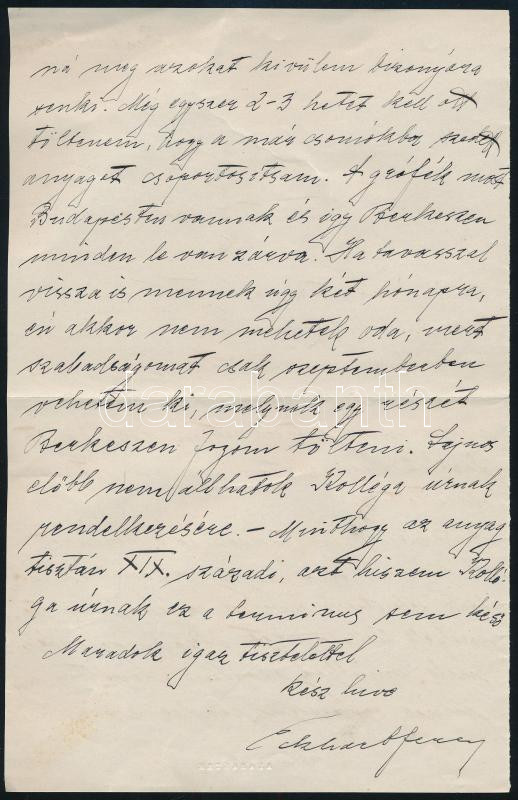 ná meg azokat kivülem bizonyára
senki. Még egyszer 2-3 hetet kell ott
töltenem, hogy a már csomókba szedett
anyagot csoportosítsam. A grófék most
Budapesten vannak és igy Berkeszen
minden le van zárva. Ha tavasszal
vissza is mennek úgy két hónapra,
én akkor nem mehetek oda, mert
szabadságomat csak szeptemberben
vehetem ki, melynek egy részét
Berkeszen fogom tölteni. Sajnos
előbb nem állhatok Kolléga úrnak
rendelkezésére. – Minthogy az anyag
tisztán XIX. századi, azt hiszem Kollé-
ga úrnak ez a terminus sem késő
Maradok igaz tisztelettel
kész hive
Eckhart Ferenc
darabanth